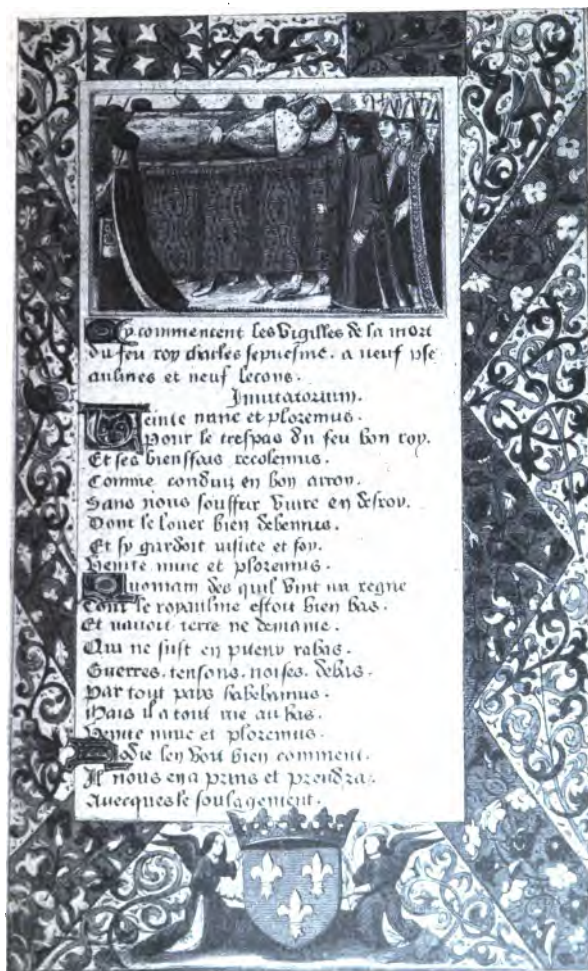 Cy commencent les Vigilles de la mort
du feu roy charles septiesme. a neuf pse
aulmes et neuf lecons.
Inuitatorium.
Venite nunc et ploremus.
Pour le trespas du feu bon roy.
Et ses bienffais recolemus.
Comme conduiz en bon arroy.
Sans nous souffrir viure en desroy.
Dont le louer bien debemus.
Et sy gardoit iustice et foy.
Venite nunc et ploremus.
Quoniam des quil vint au regne
Tout le royaulme estoit bien bas.
Et nauoit terre ne demaine.
Qui ne fust en piteux rabas.
Guerres. tensons. noises. debas.
Par tout pays habebamus.
Mais il a tout mis au bas.
Venite nunc et ploremus.
Hodie len voit bien comment.
Il nous en a prins et prendra.
Auecques le soulagement.